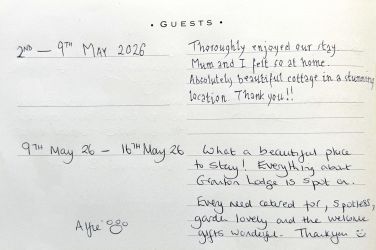 • GUESTS •
2ND — 9TH MAY 2026
Thoroughly enjoyed our stay.
Mum and I felt so at home.
Absolutely beautiful cottage in a stunning
location. Thank you!!
9TH May 26 – 16TH May 26
What a beautiful place
to stay! Everything about
Granton Lodge is spot on.
Every need catered for, spotless,
garden lovely and the welcome
gifts wonderful. Thankyou